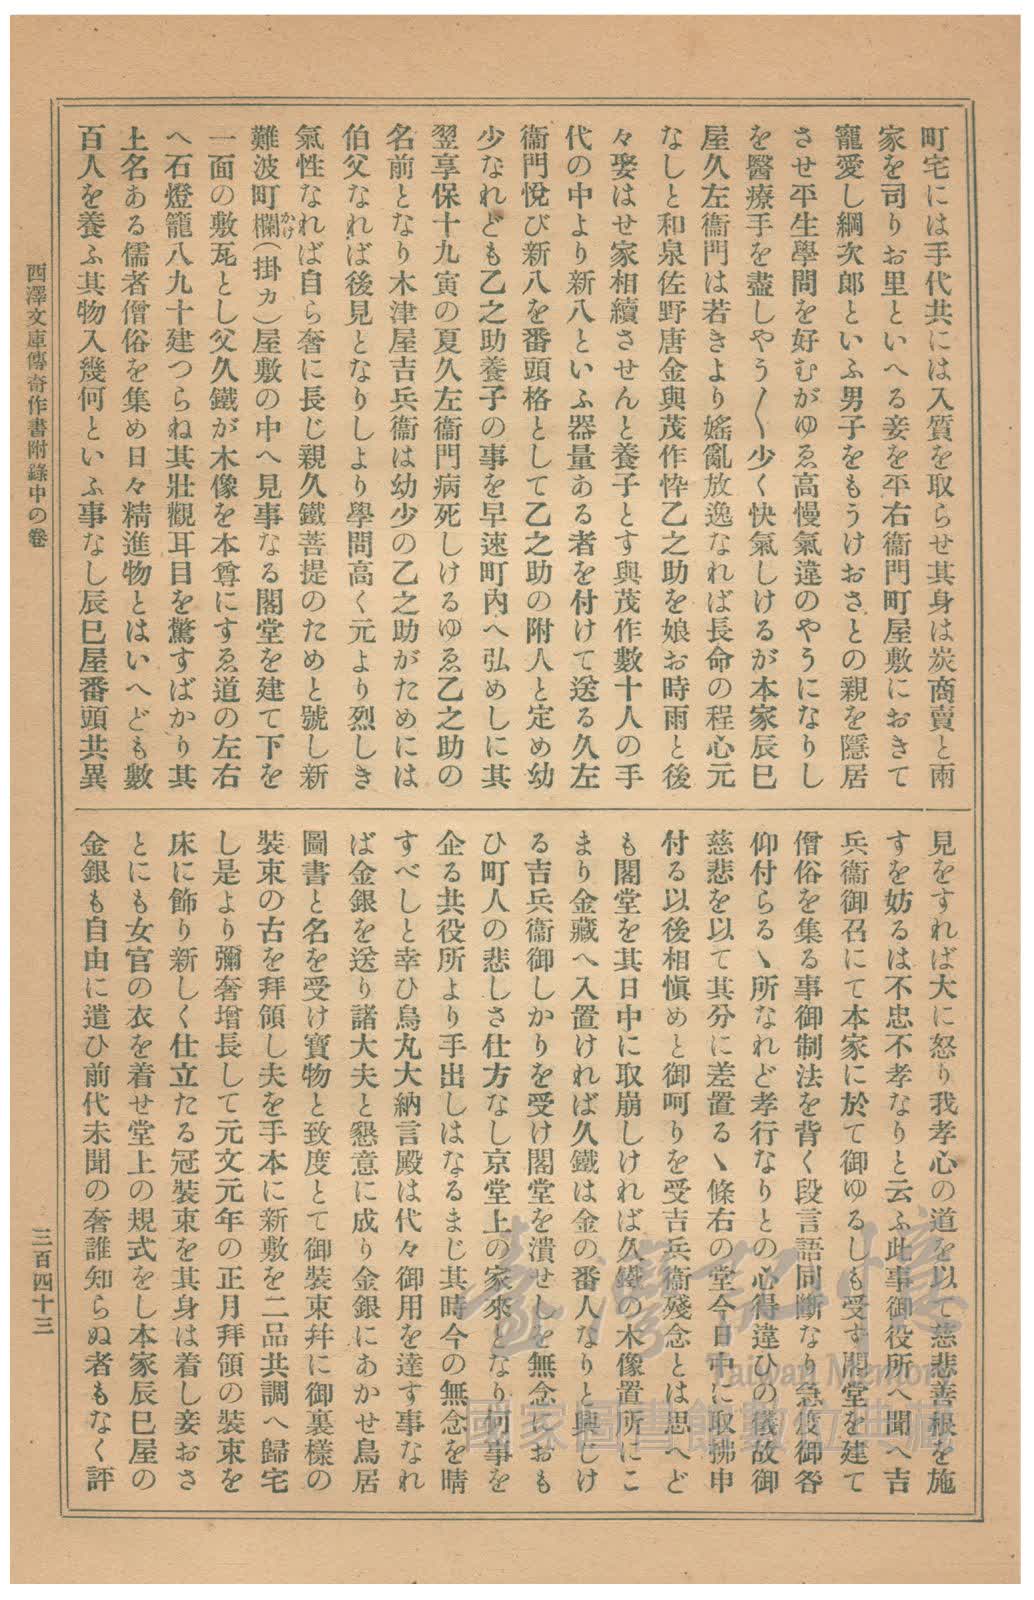 町宅には手代共には入質を取らせ其身は炭商賣と兩
家を司りお里といへる妾を平右衞門町屋敷におきて
寵愛し綱次郎といふ男子をもうけおさとの親を隱居
させ平生學問を好むがゆゑ高慢氣違のやうになりし
を醫療手を盡しやう〳〵少く快氣しけるが本家辰巳
屋久左衞門は若きより婬亂放逸なれば長命の程心元
なしと和泉佐野唐金與茂作忰乙之助を娘お時雨と後
々娶はせ家相續させんと養子とす與茂作數十人の手
代の中より新八といふ器量ある者を付けて送る久左
衞門悅び新八を番頭格として乙之助の附人と定め幼
少なれども乙之助養子の事を早速町內へ弘めしに其
翌享保十九寅の夏久左衞門病死しけるゆゑ乙之助の
名前となり木津屋吉兵衞は幼少の乙之助がためには
伯父なれば後見となりしより學問高く元より烈しき
氣性なれば自ら奢に長じ親久鐵菩提のためと號し新
難波町欄かけ(掛ヵ)屋敷の中へ見事なる閣堂を建て下を
一面の敷瓦とし父久鐵が木像を本尊にすゑ道の左右
へ石燈籠八九十建つらね其壯觀耳目を驚すばかり其
上名ある儒者僧俗を集め日々精進物とはいへども數
百人を養ふ其物入幾何といふ事なし辰巳屋番頭共異
見をすれば大に怒り我孝心の道を以て慈悲善根を施
すを妨るは不忠不孝なりと云ふ此事御役所へ聞へ吉
兵衞御召にて本家に於て御ゆるしも受ず閣堂を建て
僧俗を集る事御制法を背く段言語同斷なり急度御咎
仰付らるゝ所なれど孝行なりとの心得違ひの儀故御
慈悲を以て其分に差置るゝ條右の堂今日中に取拂申
付る以後相愼めと御呵りを受吉兵衞殘念とは思へど
も閣堂を其日中に取崩しければ久鐵の木像置所にこ
まり金藏へ入置ければ久鐵は金の番人なりと興じけ
る吉兵衞御しかりを受け閣堂を潰せしを無念におも
ひ町人の悲しさ仕方なし京堂上の家來となり何事を
企る共役所より手出しはなるまじ其時今の無念を晴
すべしと幸ひ烏丸大納言殿は代々御用を達す事なれ
ば金銀を送り諸大夫と懇意に成り金銀にあかせ鳥居
圖書と名を受け寳物と致度とて御裝束幷に御裏樣の
裝束の古を拜領し夫を手本に新敷を二品共調へ歸宅
し是より彌奢增長して元文元年の正月拜領の裝束を
床に飾り新しく仕立たる冠裝束を其身は着し妾おさ
とにも女官の衣を着せ堂上の規式をし本家辰巳屋の
金銀も自由に遣ひ前代未聞の奢誰知らぬ者もなく評
西澤文庫傳奇作書附錄中の卷
三百四十三
臺灣記憶
Taiwan Memory
國家圖書館數位典藏